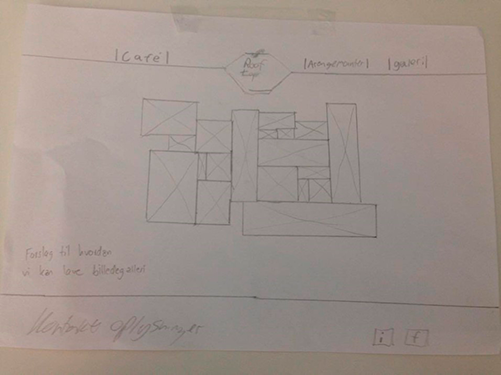 |Café|
Roof
top
|Arrangementer|
|galleri|
Forslag til hvordan
vi kan lave billedegalleri
Kontakt oplysninger
i
f